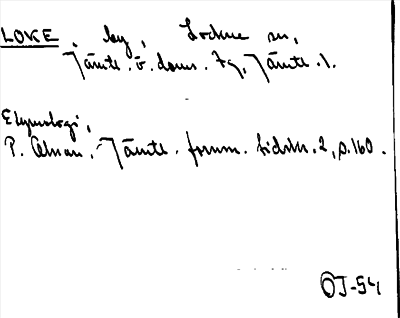 LOKE, by, Lockne sn,
Jämtl. ö. doms. tg, Jämtl. l.
Etymologi,
P. Olman, Jämtl. fornm. tidskr. 2, s. 160.
OJ-54